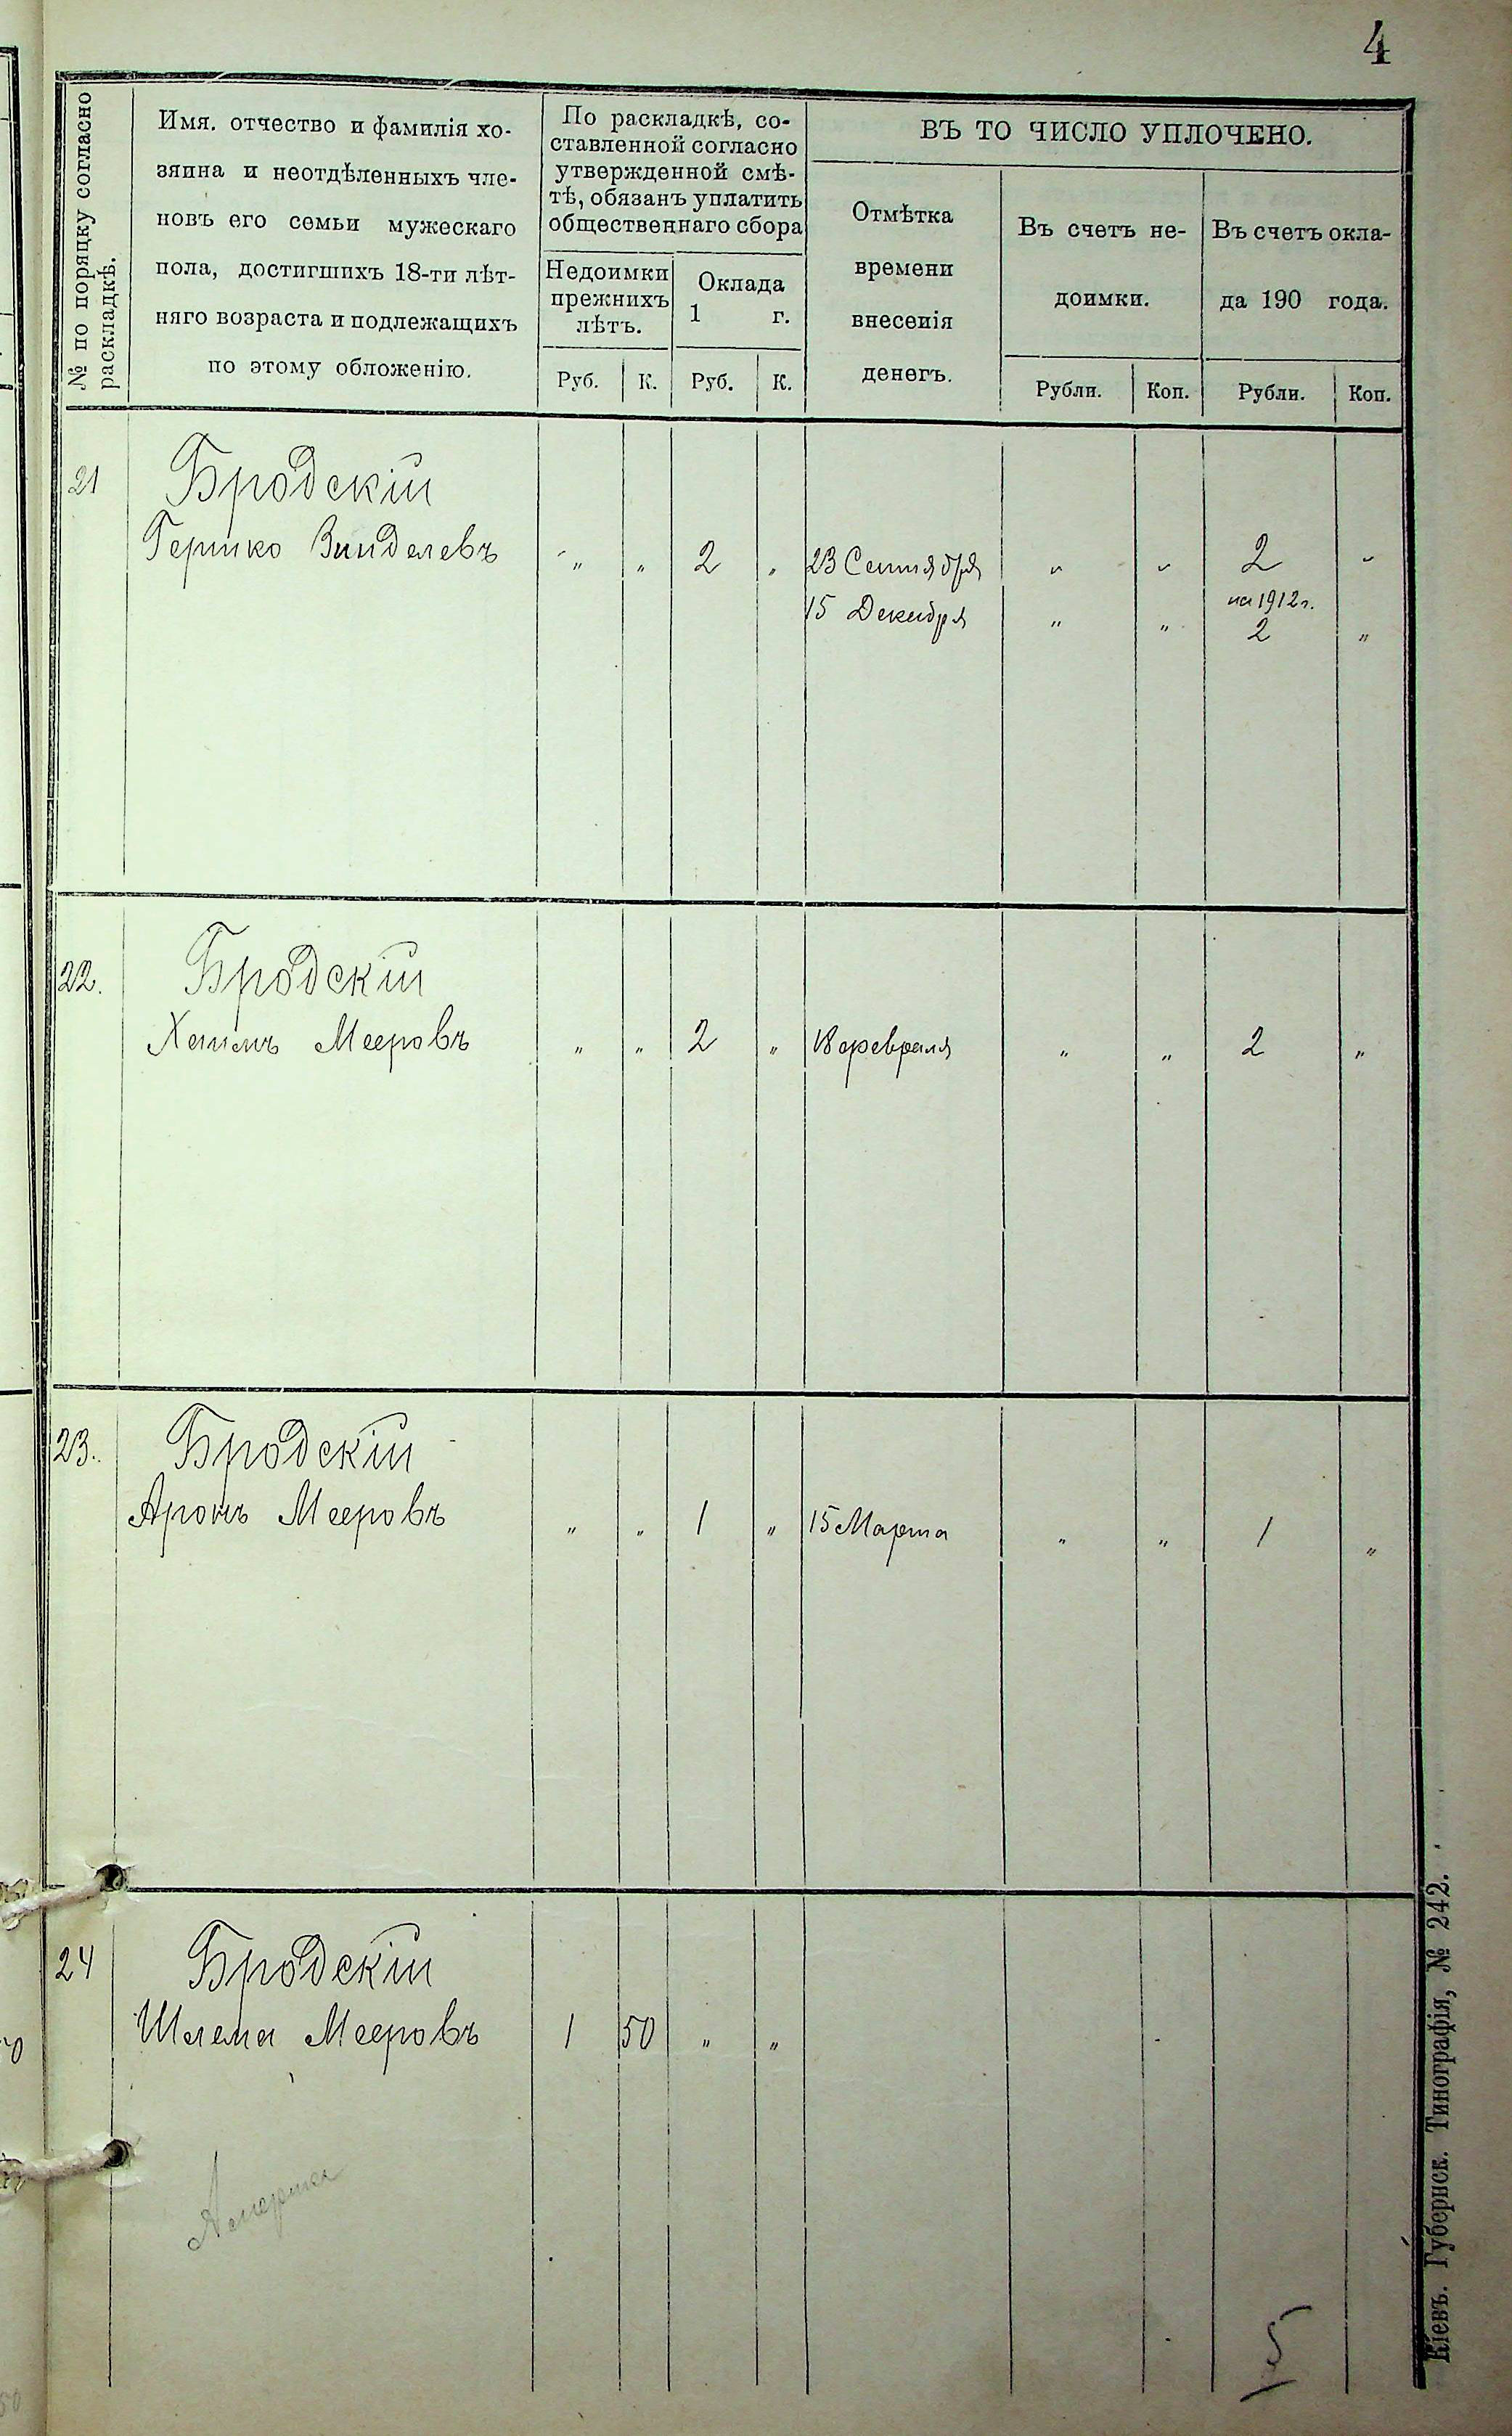 4
№ по порядку согласно
раскладкѣ.
Имя. отчество и фамилія хо-
зяина и неотдѣленныхъ чле-
новъ его семьи мужескаго
пола, достигшихъ 18-ти лѣт-
няго возраста и подлежащихъ
по этому обложенію.
По раскладкѣ, со-
ставленной согласно
утвержденной смѣ-
тѣ, обязанъ уплатить
общественнаго сбора
Недоимки
прежнихъ
лѣтъ.
Руб. К.
Оклада
1 г.
Руб. К.
ВЪ ТО ЧИСЛО УПЛОЧЕНО.
Отмѣтка
времени
внесенія
денегъ.
Въ счетъ не-
доимки.
Рубли. Коп.
Въ счетъ окла-
да 190 года.
Рубли. Коп.
21 Бродскій
Гершко Зинделевъ " " 2 " 23 Сентября " " 2 "
на 1912 г.
15 Декабря " " 2 "
22. Бродскій
Хаимъ Мееровъ " " 2 " 18 февраля " " 2 "
23. Бродскій
Аронъ Мееровъ " " 1 " 15 Марта " " 1 "
24 Бродскій
Шлема Мееровъ 1 50 " "
Америка
5
Кіевъ. Губернск. Типографія, № 242.